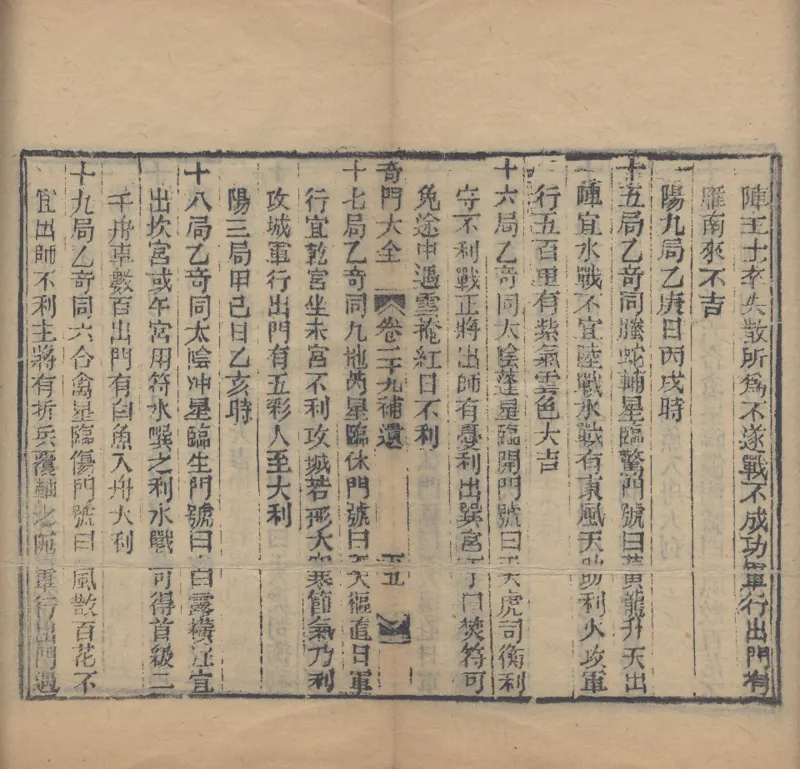 陣主士卒失散所爲不遂戰不成功軍行出門有
雁南來不吉
陽九局乙庚日丙戌時
十五局乙奇同螣蛇輔星臨驚門號曰黃龍升天出
陣宜水戰不宜陸戰水戰有東風天助利火攻軍
行五百里有紫氣雲色大吉
十六局乙奇同太陰蓬星臨開門號曰天虎司衡利
守不利戰正將出師有憂利出巽宮可日焚符可
免途中遇雲掩紅日不利
奇門大全 卷二十九補遺 五
十七局乙奇同九地芮星臨休門號曰天樞直日軍
行宜乾宮坐未宮不利攻城若形大寒節氣乃利
攻城軍行出門有五彩人至大利
陽三局甲己日乙亥時
十八局乙奇同太陰冲星臨生門號曰白露橫江宜
出坎宮或午宮用符水噀之利水戰可得首級二
千舟車數百出門有白魚入舟大利
十九局乙奇同六合禽星臨傷門號曰風散百花不
宜出師不利主將有折兵覆軸之 軍行出門遇